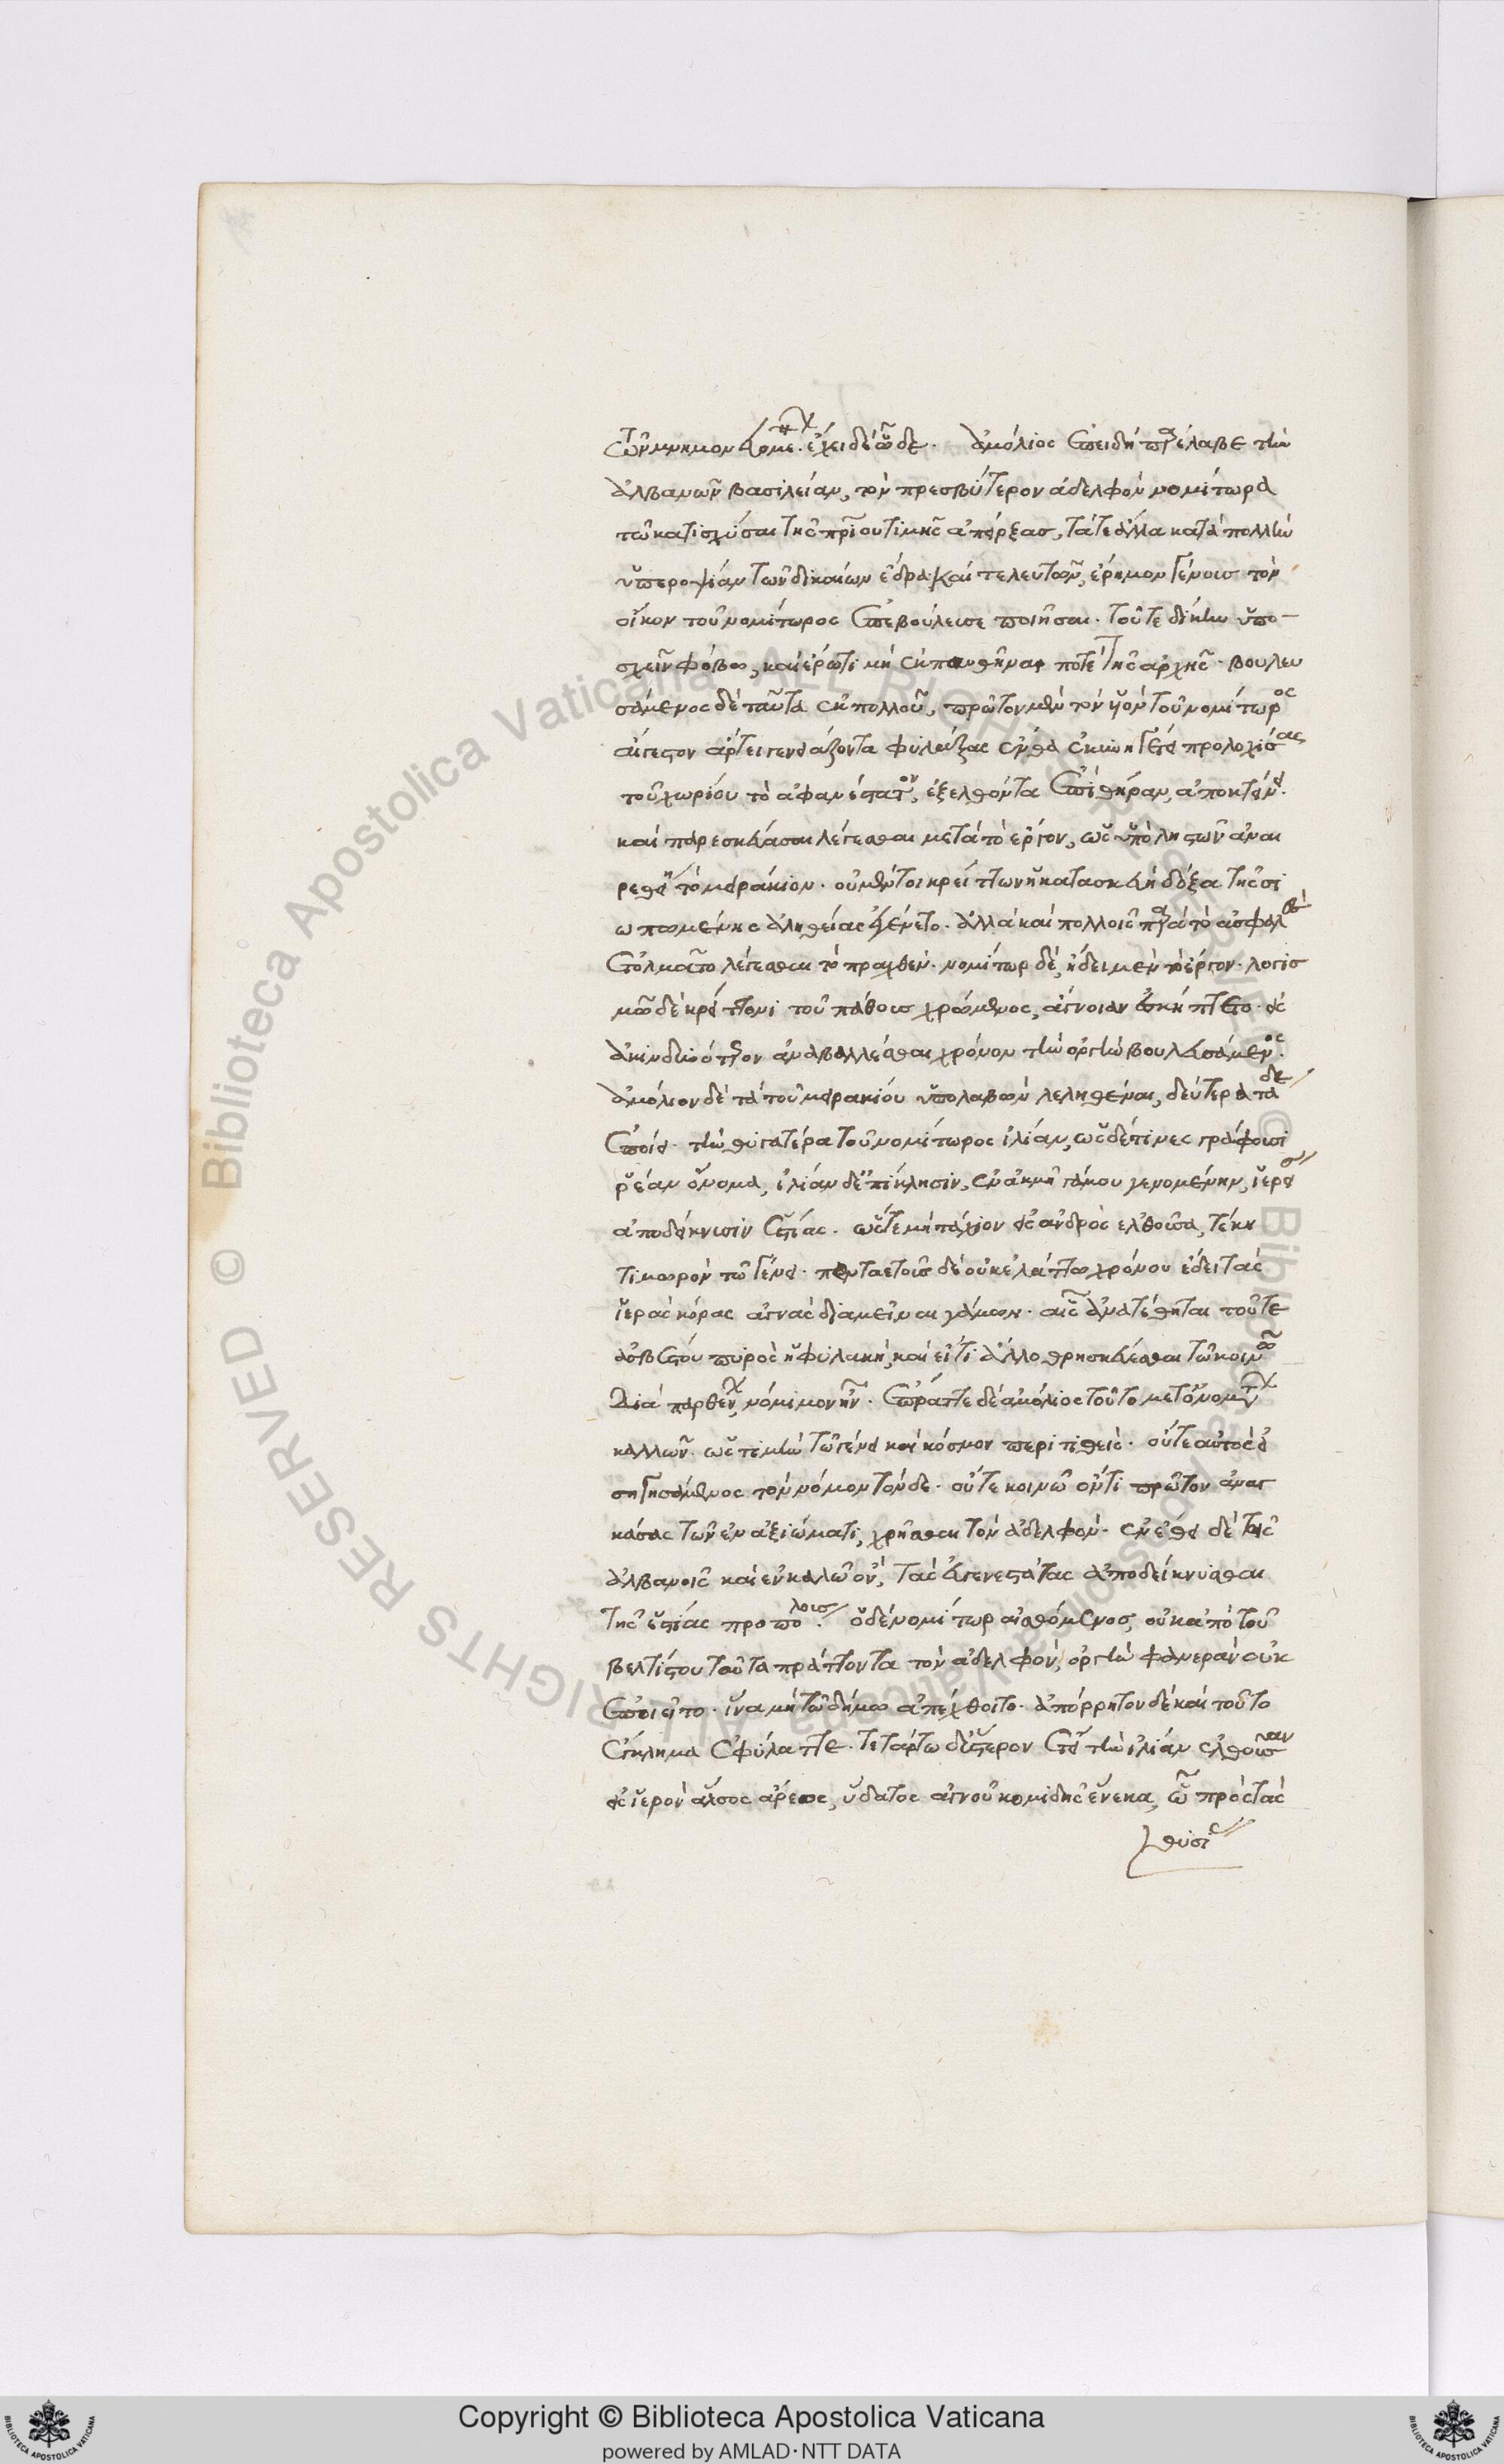 τῶν μνημονευομένων. ἔχει δὲ ὧδε. ἀμόλιος ἐπειδὴ παρέλαβε τὴν
ἀλβανῶν βασιλείαν, τὸν πρεσβύτερον ἀδελφὸν νομίτωρα
τῶ κατισχύσαι τῆς πατρίου τιμῆς ἀπείρξας, τά τε ἄλλα κατὰ πολλὴν
ὑπεροψίαν τῶν δικαίων ἔδρα, καὶ τελευτῶν, ἔρημον γένους τὸν
οἶκον τοῦ νομίτωρος ἐπεβούλευσε ποιῆσαι. τοῦ τε δίκην ὑπο-
σχεῖν φόβω, καὶ ἔρωτι μὴ παυθῆναι ποτὲ τῆς ἀρχῆς. βουλευ
σάμενος δὲ ταῦτα ἐκ πολλοῦ, πρῶτον μὲν τὸν υἱὸν τοῦ νομίτωρος
αἴγεστον ἄρτι γενειάζοντα φυλάξας ἔνθα ἐκυνηγέτει προλοχίσας
τοῦ χωρίου τὸ ἀφανέστατον, ἐξελθόντα ἐπὶ θήραν, ἀποκτείνει.
καὶ παρεσκεύασε λέγεσθαι μετὰ τὸ ἔργον, ὡς ὑπὸ ληστῶν ἀναι
ρεθείη τὸ μειράκιον. οὐ μέντοι κρείττων ἡ κατασκευὴ δόξα τῆς σι
ωπωμένης ἀληθείας ἐγένετο. ἀλλὰ καὶ πολλοῖς παρὰ τὸ ἀσφαλὲς
ἐτολμᾶτο λέγεσθαι τὸ πραχθέν. νομίτωρ δὲ, ἤδει μὲν τὸ ἔργον. λογισ
μῶ δὲ κρείττονι τοῦ πάθους χρώμενος, ἄγνοιαν ἐσκήπτετο. εἰς
ἀκινδυνότερον ἀναβαλλέσθαι χρόνον τὴν ὀργὴν βουλευσάμενος.
ἀμόλιον δὲ τὰ τοῦ μειρακίου ὑπολαβὼν λεληθέναι, δεύτερα τάδε
ἐποίει. τὴν θυγατέρα τοῦ νομίτωρος ἰλίαν, ὡς δέ τινες γράφουσι
ῥέαν ὄνομα, ἰλίαν δ' ἐπίκλησιν, ἐν ἀκμῆ γάμου γενομένην, ἱέρειαν
ἀποδείκνυσιν ἑστίας. ὡς τε μὴ τάχιον εἰς ἀνδρὸς ἐλθοῦσα, τέκη
τιμωρὸν τῶ γένει. πενταετοῦς δὲ οὐκ ἐλάττω χρόνου ἔδει τὰς
ἱερὰς κόρας ἁγνὰς διαμεῖναι γάμων. αἷς ἀνατέθηται τοῦ τε
ἀσβέστου πυρὸς ἡ φυλακὴ, καὶ εἴ τι ἄλλο θρησκεύεσθαι τῶ κοινῶ
διὰ παρθένων νόμιμον ἦν. ἔπραττε δὲ ἀμόλιος τοῦτο μετ' ὀνομάτων
καλλῶν. ὡς τιμὴν τῶ γένει καὶ κόσμον περιτιθεὶς. οὔτε αὐτὸς εἰ
σηγησάμενος τὸν νόμον τόνδε. οὔτε κοινῶ ὄντι πρῶτον ἀναγ
κάσας τῶν ἐν ἀξιώματι, χρῆσθαι τὸν ἀδελφόν. ἐν ἔθει δὲ τοῖς
ἀλβανοῖς καὶ ἐν καλῶ ὂν, τὰς εὐγενεστάτας ἀποδείκνυσθαι
τῆς ἑστίας προπόλους. ὁ δὲ νομίτωρ αἰσθόμενος, οὐκ ἀπὸ τοῦ
βελτίστου ταῦτα πράττοντα τὸν ἀδελφὸν, ὀργὴν φανερὰν οὐκ
ἐποιεῖτο. ἵνα μὴ τῶ δήμω ἀπέχθοιτο. ἀπόρρητον δὲ καὶ τοῦτο
ἔγκλημα ἐφύλαττε. τετάρτω δ' ὕστερον ἔτει τὴν ἰλίαν ἐλθοῦσαν
εἰς ἱερὸν ἄλσος ἄρεος, ὕδατος ἁγνοῦ κομιδῆς ἕνεκα, ὧ πρὸς τὰς
θυσίας